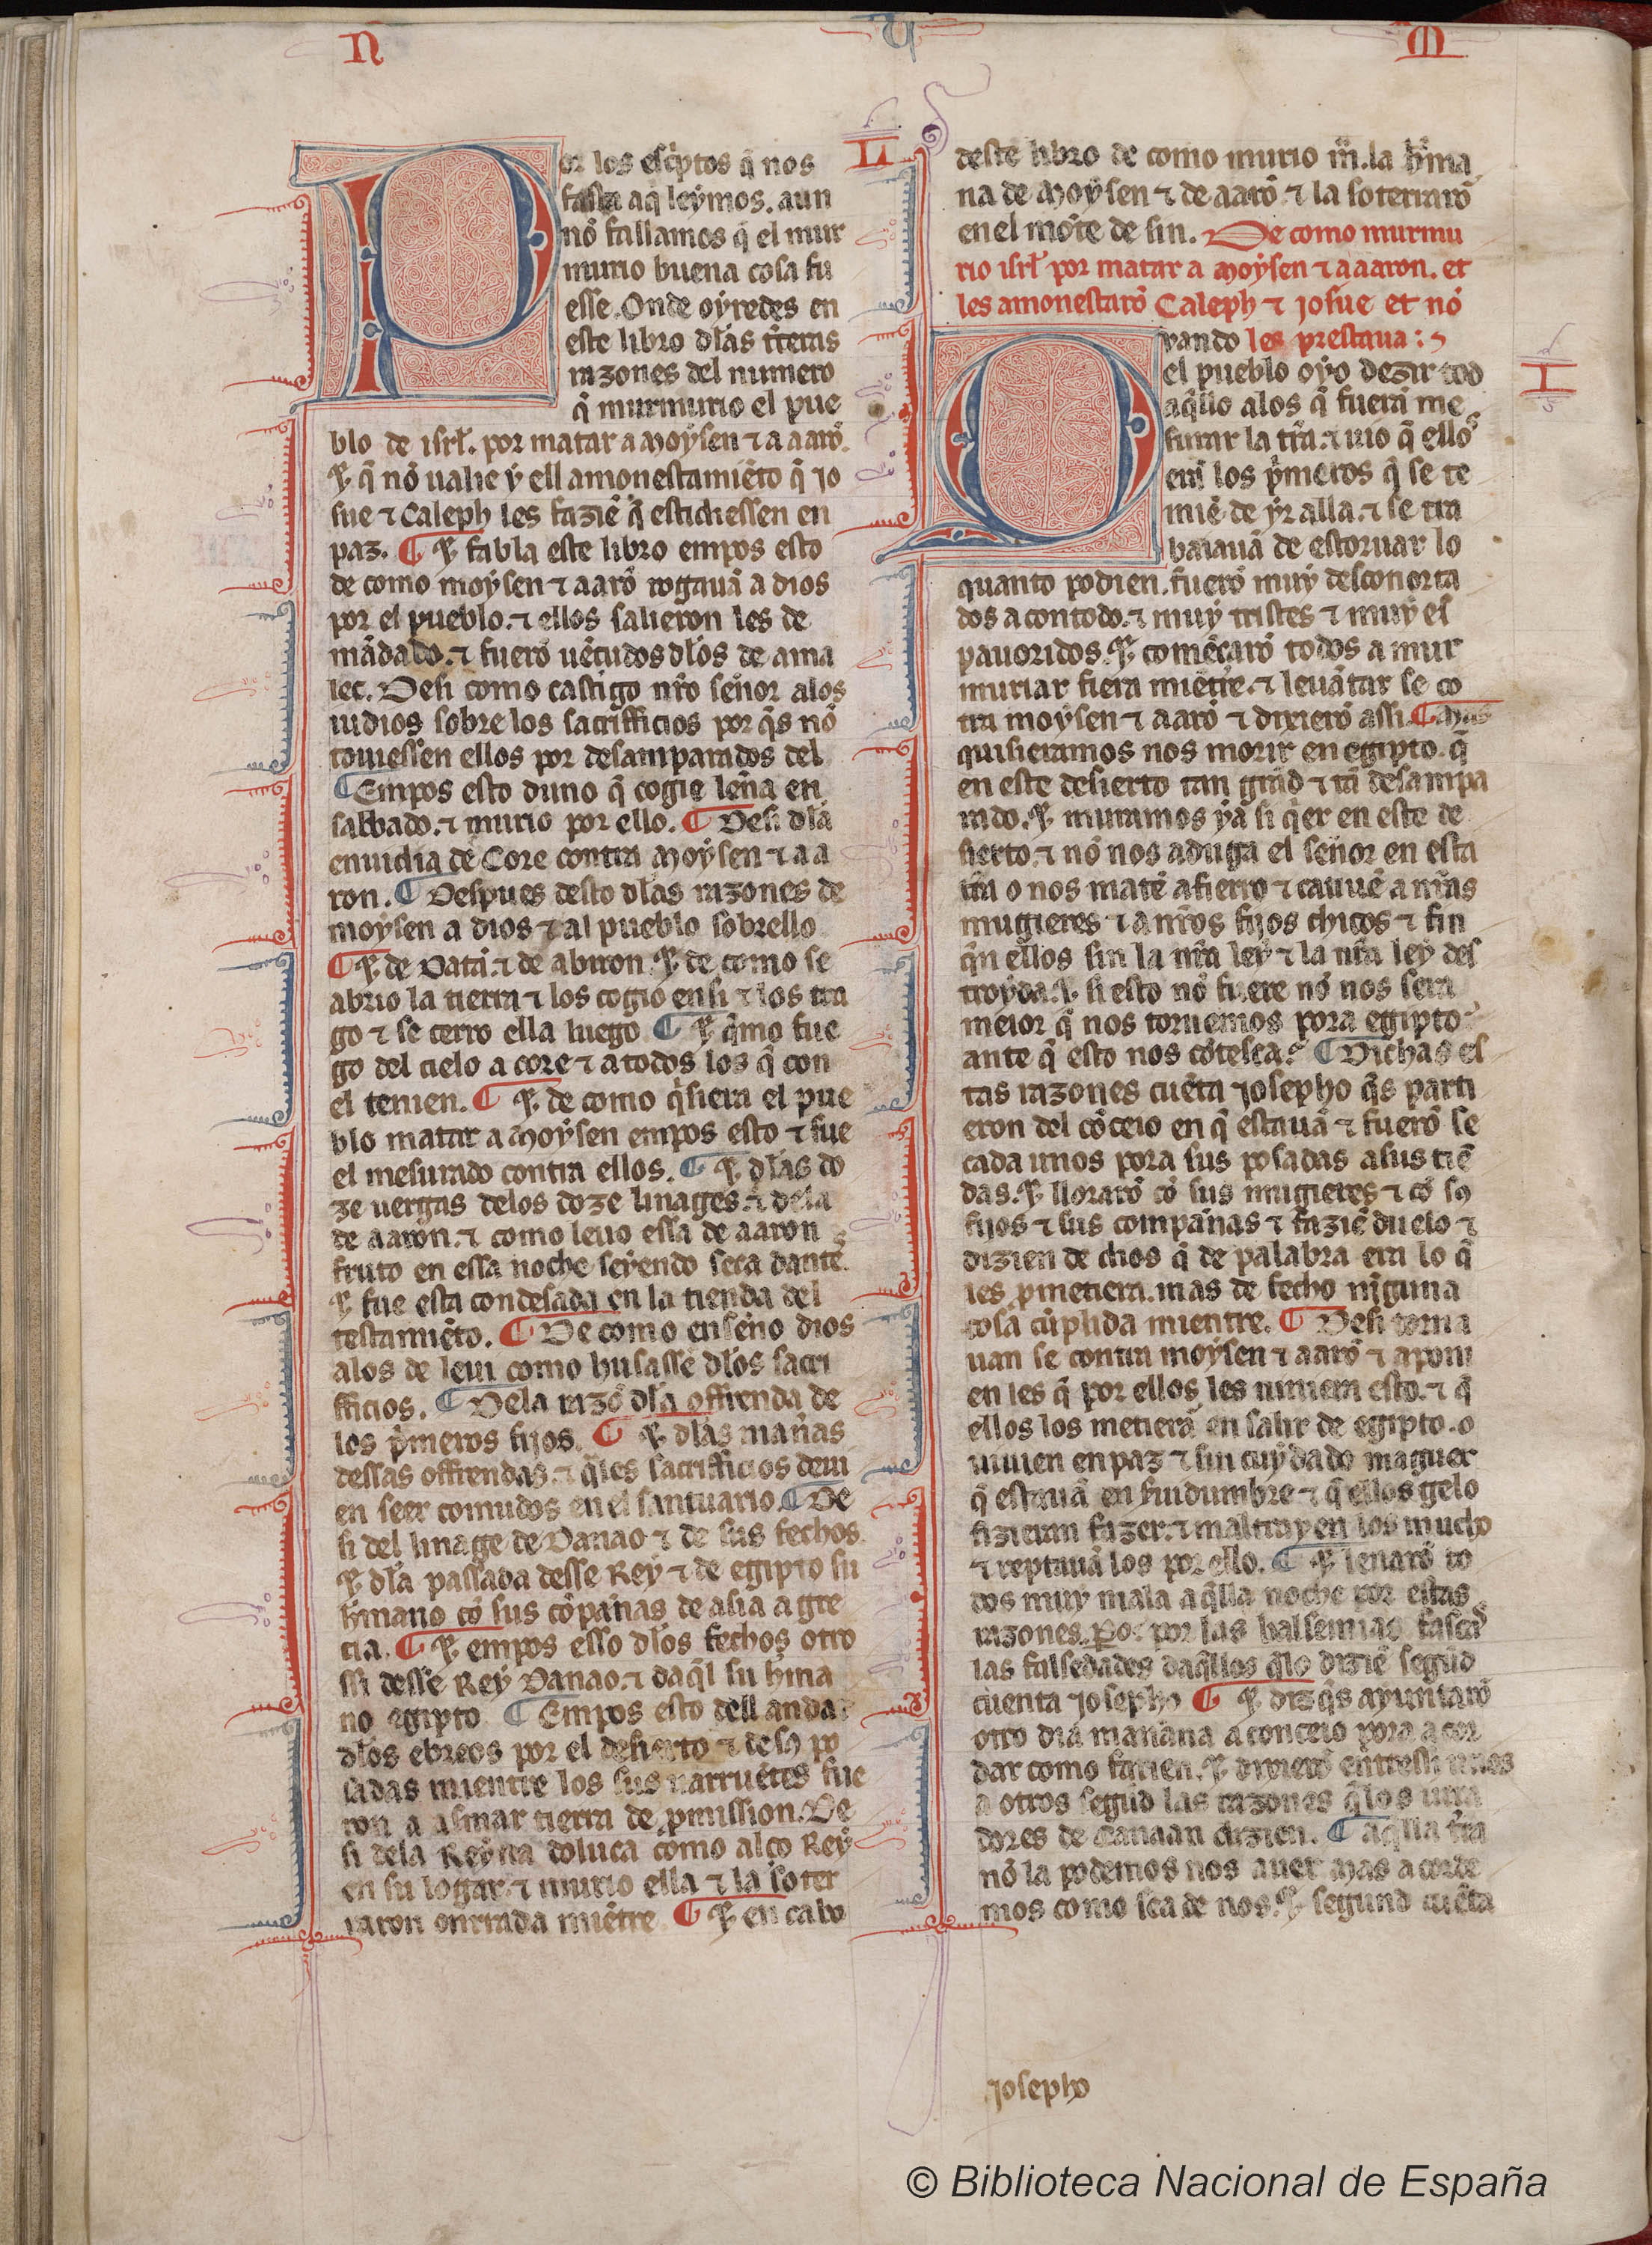 N U M
Por los esc̃ptos q̃ nos
fasta aq̃ leymos. aun
nõ fallamos q̃ el mur
murio buena cosa fu
esse. Onde oyredes en
este libro dłas t̃ceras
razones del numero
q̃ murmurio el pue
blo de isrł. por matar a Moysen ⁊ a aarõ.
⁊ q̃ nõ ualie y ell amonestamiẽto q̃ Jo
sue ⁊ Caleph les faziẽ q̃ estidiessen en
paz. ¶ ⁊ fabla este libro empos esto
de como moysen ⁊ aarõ rogauã a dios
por el pueblo. ⁊ ellos salieron les de
mãdado. ⁊ fuerõ uẽçudos dłos de ama
lec. Desi como castigo nr̃o señor alos
iudios sobre los sacrifficios por q̃s nõ
touiessen ellos por desamparados del
¶ Empos esto duno q̃ cogie leña en
sabbado. ⁊ murio por ello. ¶ Desi dła
enuidia de Core contra Moysen ⁊ a a
ron. ¶ Despues desto dłas razones de
moysen a dios ⁊ al pueblo sobrello
¶ ⁊ de Datã. ⁊ de abiron. ⁊ de como se
abrio la tierra ⁊ los cogio en si ⁊ los tra
go ⁊ se cerro ella luego ¶ ⁊ q̃mo fue
go del cielo a core ⁊ a todos los q̃ con
el tenien. ¶ ⁊ de como q̃siera el pue
blo matar a Moysen empos esto ⁊ fue
el mesurado contra ellos. ¶ ⁊ dłas do
ze uergas delos doze linages. ⁊ dela
de aaron. ⁊ como leuo essa de aaron
fruto en essa noche seyendo seca dante.
⁊ fue esta condesada en la tienda del
testamiẽto. ¶ De como enseño dios
alos de leui como husassẽ dłos sacri
fficios. ¶ Dela razõ dła offrenda de
los p̃meros fijos. ¶ ⁊ dłas mañas
dessas offrendas. ⁊ q̃les sacrifficios deui
en seer comudos en el santuario. ¶ De
si del linage de Danao ⁊ de sus fechos.
⁊ dła passada desse Rey ⁊ de egipto su
hr̃mano cõ sus cõpañas de asia a gre
cia. ¶ ⁊ empos esso dłos fechos otro
ssi desse Rey Danao. ⁊ daq̃l su hr̃ma
no egipto ¶ Empos esto dell andar
dłos ebreos por el desierto ⁊ de sꝯ po
sadas mientre los sus barruẽtes fue
ron a asmar tierra de p̱mission. De
si dela Reyna doluca como alço Rey
en su logar. ⁊ murio ella ⁊ la soter
raron onrrada miẽtre ¶ ⁊ en cabo
deste libro de como murio m̃. la hr̃ma
na de Moysen ⁊ de aarõ ⁊ la soterrarõ
en el mõte de sin. De como murmu
rio isrł por matar a Moysen ⁊ a aaron. et
les amonestarõ Caleph ⁊ Josue et nõ
les prestaua :
I
Quando
el pueblo oyo dezir tod
aq̃llo alos q̃ fuerã me
surar la tr̃ra. ⁊ uio q̃ ellos
erã los p̃meros q̃ se te
miẽ de yr alla. ⁊ se tra
baiauã de estoruar lo
quanto podien. fuerõ muy desconorta
dos a contodo. ⁊ muy tristes ⁊ muy es
pauoridos. ⁊ comẽçarõ todos a mur
muriar fiera miẽtre. ⁊ leuãtar se co
tra moysen ⁊ aarõ ⁊ dixierõ assi. ¶ Mas
quisieramos nos morir en egipto. q̃
en este desierto tan grãd ⁊ tã desampa
rado. ⁊ muramos ya si q̃er en este de
sierto. ⁊ nõ nos aduga el señor en esta
tr̃ra o nos matẽ a fierro ⁊ catiuẽ a nr̃as
mugieres ⁊ a nr̃os fijos chicos ⁊ fin
q̃n ellos sin la nr̃a ley ⁊ la nr̃a ley des
troyda. ⁊ si esto nõ fuere nõ nos sera
meior q̃ nos tornemos pora egipto
ante q̃ esto nos cõtesca. ¶ Dichas es
tas razones cuẽta Josepho q̃s parti
eron del cõceio en q̃ estauã ⁊ fuerõ se
cada unos pora sus posadas a sus tiẽ
das. ⁊ llorarõ cõ sus mugieres ⁊ cõ sꝯ
fijos ⁊ sus compañas ⁊ faziẽ duelo ⁊
dizien de dios q̃ de palabra era lo q̃
les p̱metiera. mas de fecho nĩguna
cosa cũplida mientre. ¶ Desi torna
uan se contra moysen ⁊ aarõ ⁊ aponi
en les q̃ por ellos les uiniera esto. ⁊ q̃
ellos los metierã en salir de egipto. o
uiuien en paz ⁊ sin cuydado maguer
q̃ estauã en siuidumbre ⁊ q̃ ellos gelo
fizieran fazer. ⁊ maltrayen los mucho
⁊ reptauã los por ello. ¶ ⁊ leuarõ to
dos muy mala aq̃lla noche por estas
razones. por las balsemias
las falsedades daq̃llos q̃lo diziẽ segũd
cuenta Josepho ¶ ⁊ diz q̃s ayuntarõ
otro dia mañana a conceio pora acor
dar como farien. ⁊ dixierõ entressi unos
a otros segũd las razones q̃los mira
dores de Canaan dizien. ¶ aq̃lla tr̃ra
nõ la podemos nos auer mas acorde
mos como sea de nos. ⁊ segund cuẽta
Josepho
© Biblioteca Nacional de España